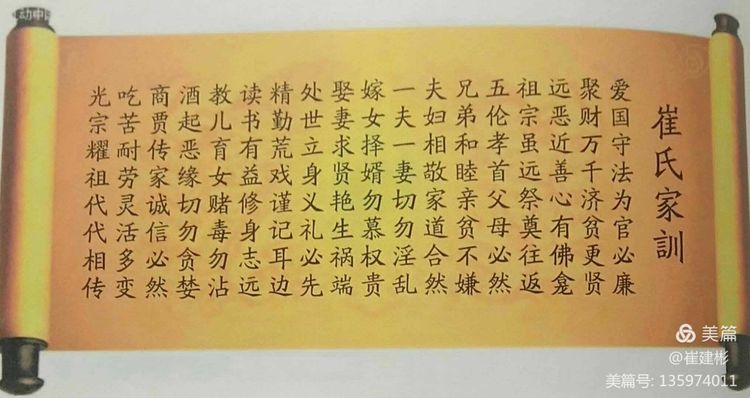 崔氏家訓
爱国守法为官必廉
聚财万千济贫更贤
远恶近善心有佛龛
祖宗虽远祭奠往返
五伦孝首父母必然
兄弟和睦亲贫不嫌
夫妇相敬家道合然
一夫一妻切勿淫乱
嫁女择婿勿慕权贵
娶妻求贤艳生祸端
处世立身义礼必先
精勤荒戏谨记耳边
读书有益修身志远
教儿育女赌毒勿沾
酒起恶缘切勿贪婪
商贾传家诚信必然
吃苦耐劳灵活多变
光宗耀祖代代相传
美篇
@崔建彬
美篇号: 135974011